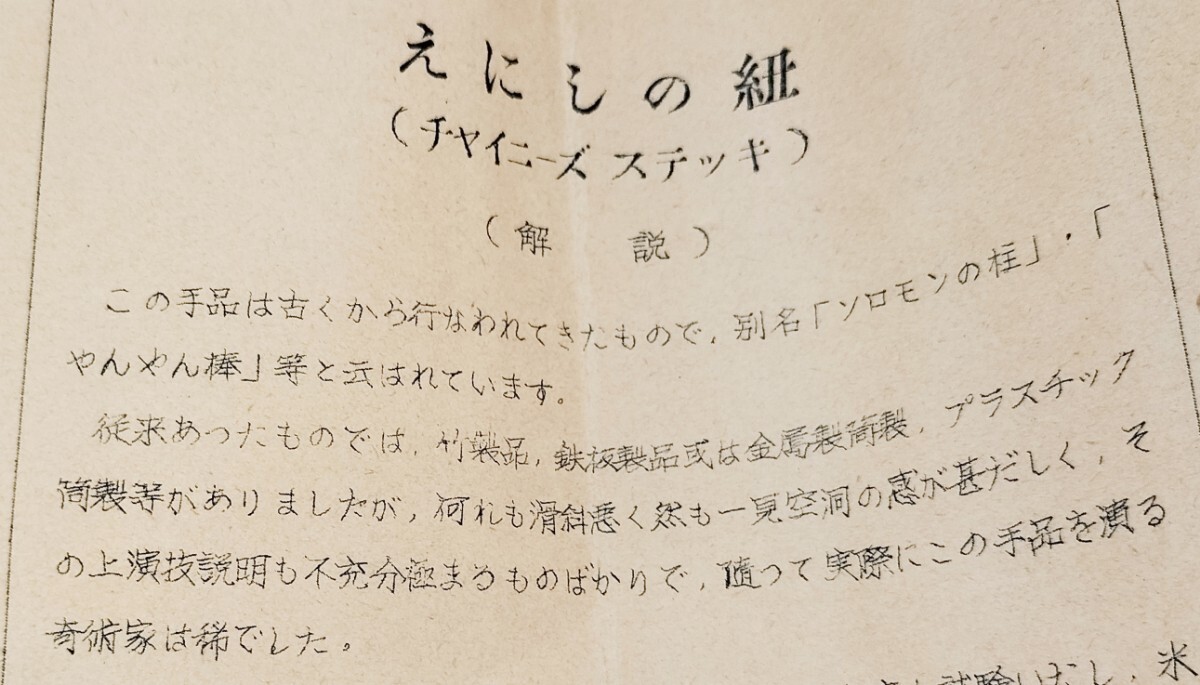 えにしの紐
(チヤイニーズ ステッキ)
(解 説)
この手品は古くから行なわれてきたもので,別名「ソロモンの柱」・「
やんやん棒」等と云はれています。
従来あつたものでは,竹製品,鉄板製品或は金属製筒製,プラスチック
筒製等がありましたが,何れも滑斜悪く然も一見空洞の感が甚だしく,そ
の上演技説明も不充分極まるものばかりで,随つて実際にこの手品を演る
奇術家は稀でした。
試験いたし,米